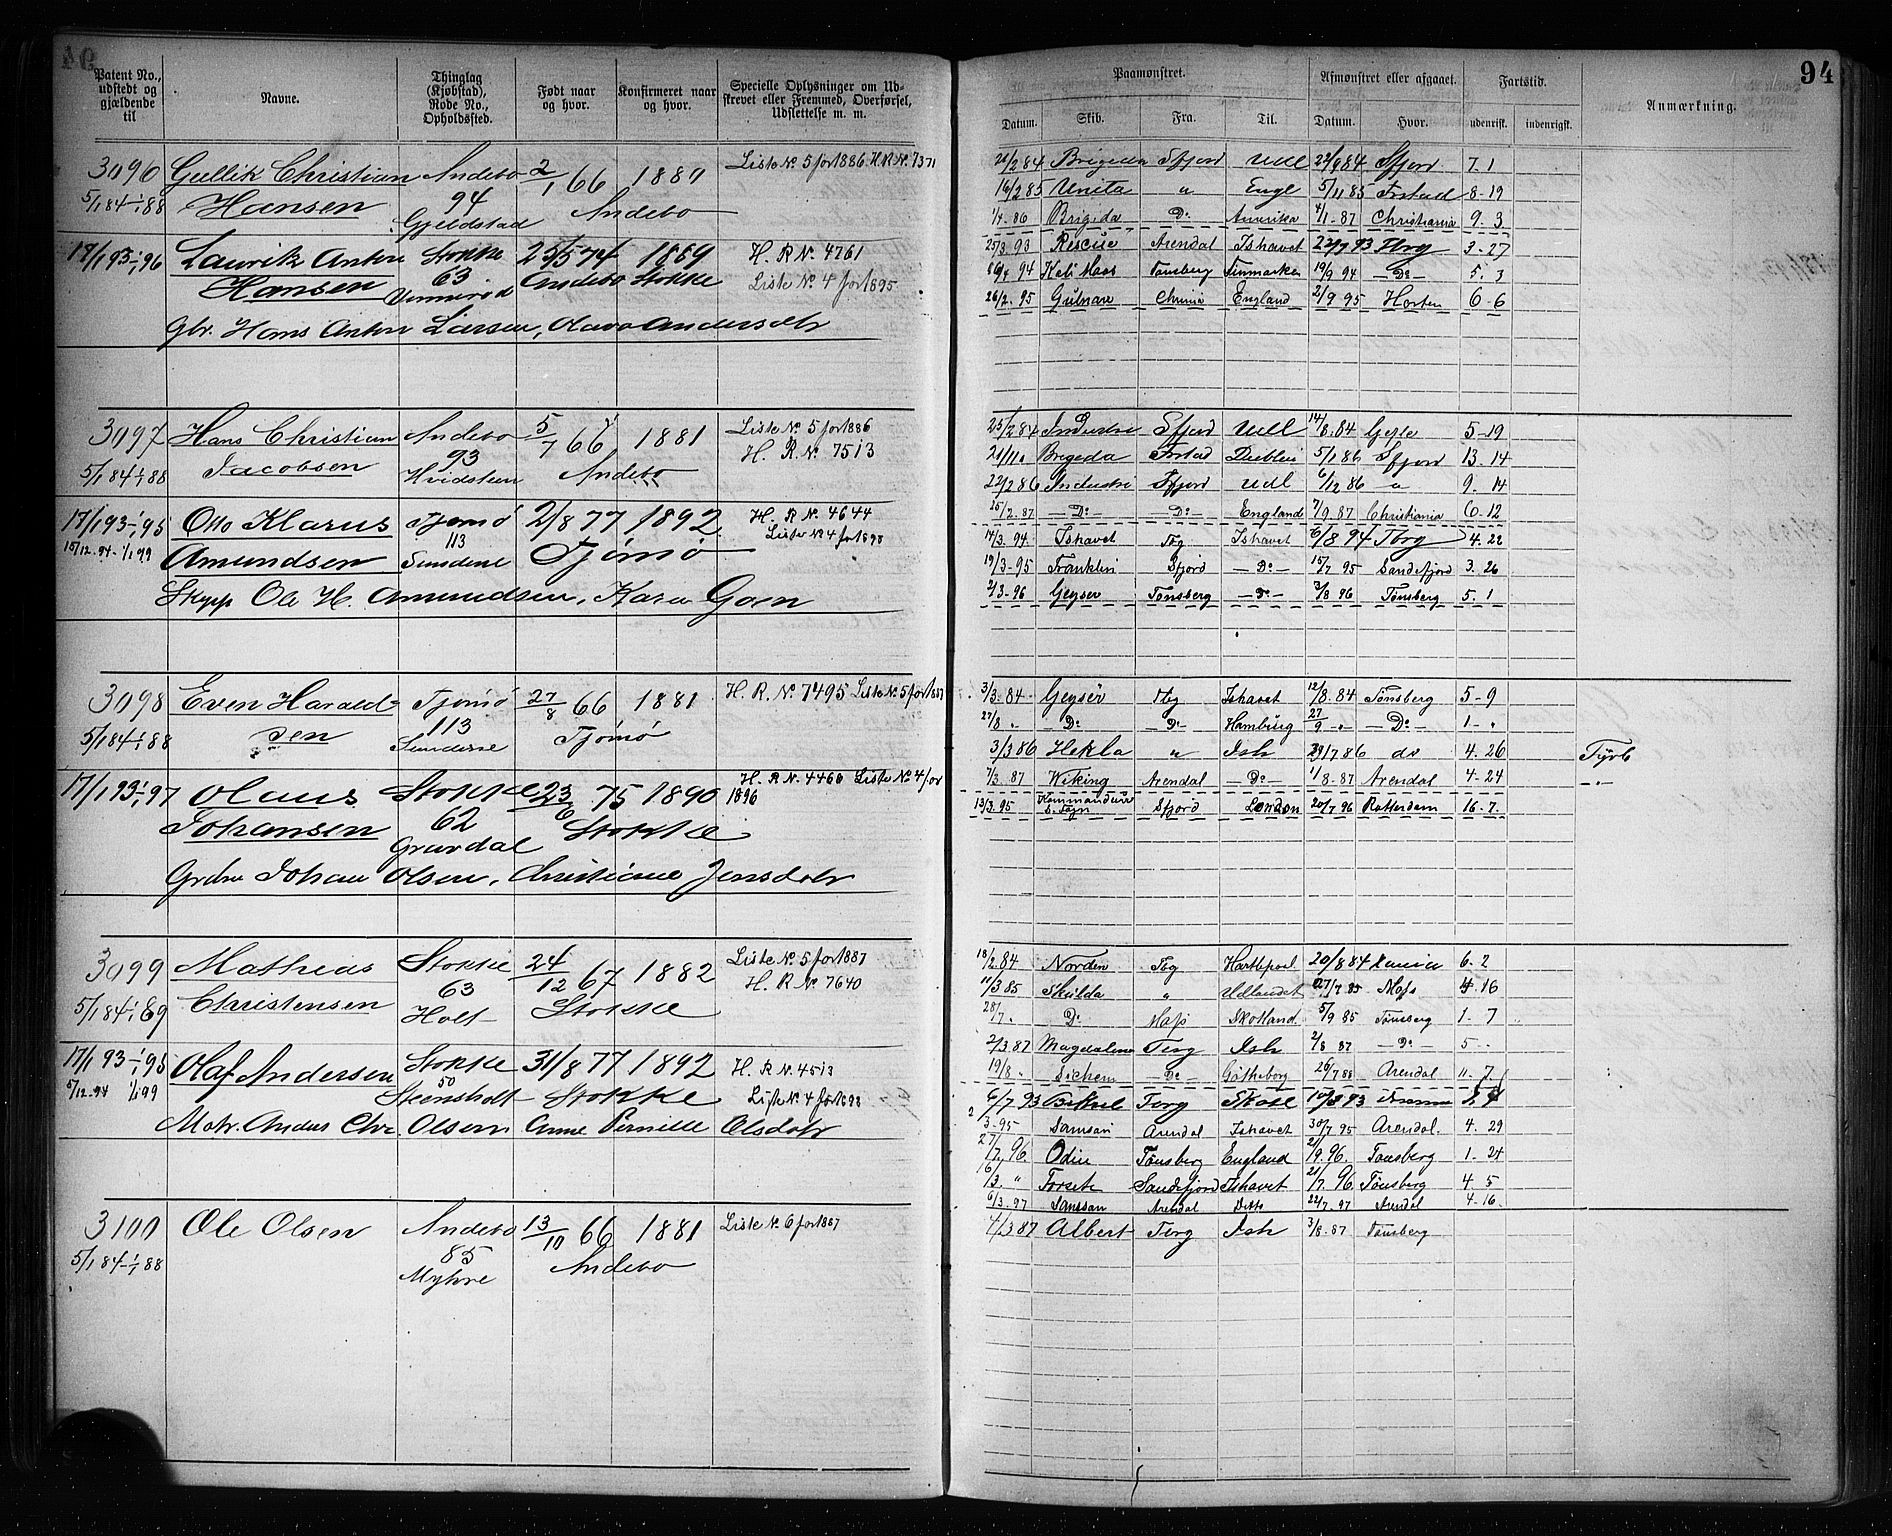 94
Patent No., udstedt og gjældende til
Navne.
Thinglag (Kjøbstad), Rode No., Opholdssted.
Født naar og hvor.
Konfirmeret naar og hvor.
Specielle Oplysninger om Udskrevet eller Fremmed, Overførsel, Udslettelse m. m.
3096 Gullik Christian Andebo 2/1 66 1880 Liste No 5 for 1886 H.R.No. 7371
5/1 84-1/1 88 Hansen 94 Andebo
Gjeldstad
17/1 93-1/1 96 Laurik Anton Stokke 25/5 74 1889 H. R No. 4761
Hansen 63 Andebo Stokke Liste No 4 for 1895
Gbr. Hans Anton Larsen, Olava Andersdtr
3097 Hans Christian Andebo 5/7 66 1881 Liste No 5 for 1886
Jacobsen 93 H. R No 7513
5/1 84-1/1 88 Hvidstein Andebo
17/1 93-1/1 95 Otto Klarus Tjømø 2/8 77 1892 H. R No. 4644
15/12-94-1/1 99 Amundsen 113 Sundene Tjømø Liste No 4 for 1898
Skipp Ole H. Amundsen, Karen Gorn
3098 Even Harald- Tjømø 27/8 66 1881 H. R. No. 7495 Liste No 5 for 1887
5/1 84-1/1 88 sen 113 Sundene Tjømø
17/1 93-1/1 97 Olaus Stokke 23/6 75 1890 H. R No. 4460 Liste No 4 for 1896
Johansen 62 Stokke
Gravdal
Grdbr Johan Olsen, Christiane Jensdatr
3099 Mathias Stokke 24/12 67 1882 Liste No 5 for 1887
Christensen 63 H. R No 7640
5/1 84-1/1 89 Holt Stokke
17/1 93-1/1 95 Olaf Andersen Stokke 31/8 77 1892 H. R No. 4513
5/12-94 1/1 99 50 Steensholt Stokke Liste No 4 for 1898
Matr. Anders Chr. Olsen Anne Pernille Olsdatr
3100 Ole Olsen Andebo 13/10 66 1881 Liste No. 6 for 1887
5/1 84-1/1 88 85 Andebo
Myhre
Paamønstret.
Afmønstret eller afgaaet.
Fartstid.
Anmærkning.
Datum. Skib. Fra. Til. Datum. Hvor. udenrigs. indenrigsk.
21/2 84 Brigeda Sfjord Udl 22/9 84 Sfjord 7. 1
16/2 85 Unita " Engl 5/11 85 Frstad 8-19
1/4. 86 Brigida Do Amerika 4/1-87 Christiania 9. 3
25/3 93 Rescue Arendal Ishavet 22/7 93 Tbrg 3-27
94 Tønsberg Finmarken 19/9 94 -Do- 5. 3
26/2. 95 Gulnare Chrnia England 2/9 95 Horten 6-6
25/2 84 Industri Sfjord Udl 14/8. 84 Gefle 5-19
21/11 " Brigeda Frstad Dublin 5/1 86 Sfjord 13. 14
22/2 86 Industri Sfjord Udl 6/12 86 " 9. 14
25/2. 87 -Do- -Do- England 7/9. 87 Christiania 6-12
14/3. 94. Ishavet Tbg Ishavet 6/8 94 Tbrg 4. 22
19/3-95 Franklin Sfjord -Do- 15/7 95 Sandefjord 3. 26
2/3-96 Geyser Tønsberg -Do- 3/8 96 Tønsberg 5. 1
3/3-84 Geysér Tbg Ishavet 12/8. 84 Tønsberg 5-9
27/8 " Do -Do- Hamburg 27/9 -"- -Do- 1-"
3/3 86 Hekla " Ish 29/7 86 do 4. 26 Tyrb
7/3. 87 Wiking Arendal -Do- 1/8-87 Arendal 4-24 -"-
13/3. 95 Kommandeur S. Foyn Sfjord London 20/7 96 Rotterdam 16-7.
18/2. 84 Norden Tbg Hartlepool 20/8 84 6. 2
11/3 85 Skulda " Udlandet 27/7 85 Moss 4. 16
28/7 " Do Moss Skotland 5/9 85 Tønsberg 1. 7
2/3. 87 Magdalena Tbrg Ish 2/8 87 -Do- 5
19/8 " Sichem -Do- Gøtheborg 26/7 88 Arendal 11-7
6/7 93 Tbrg Skotl
3-95 Samson Arendal Ishavet 30/7 95 Arendal. 4. 29
27/7. 96 Odin Tønsberg England 21/9. 96. Tønsberg 1-24
16/3. " Forsete Sandefjord Ishavet 21/7. 96 Tønsberg 4. 5
6/3. 97 Samson Arendal Ditto 22/7. 97 Arendal 4-16.
4/3 87 Albert Tbrg Ish 3/8-87 Tønsberg